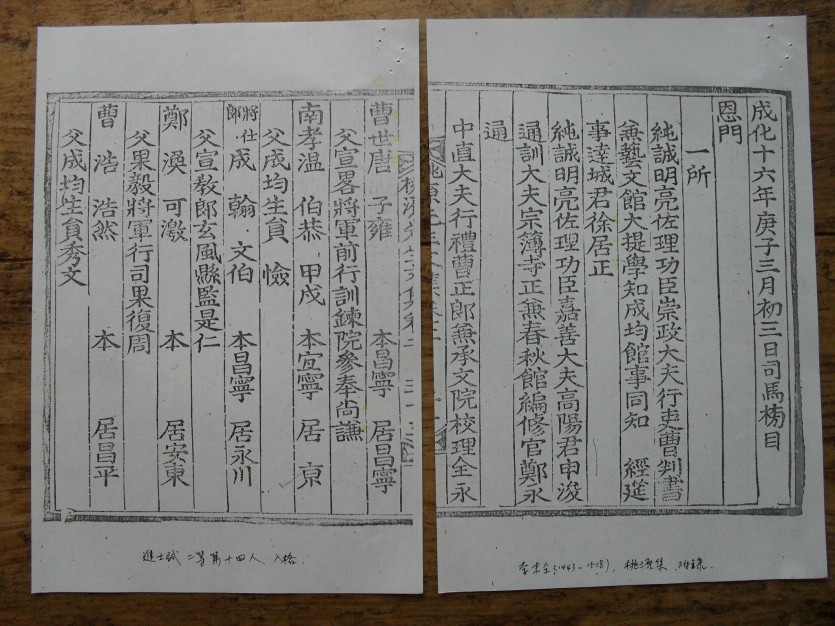 成化十六年庚子三月初三日司馬榜目
恩門
一所
純誠明亮佐理功臣崇政大夫行吏曹判書
兼藝文館大提學知成均館事同知 經筵
事達城君徐居正
純誠明亮佐理功臣嘉善大夫高陽君申浚
通訓大夫宗簿寺正兼春秋館編修官鄭永
通
中直大夫行禮曹正郎兼承文院校理金永
曹世唐 子雍 本昌寧 居昌寧
父宣畧將軍前行訓鍊院參奉尚謙
南孝溫 伯恭 甲戌 本宜寧 居京
父成均生員 恮
將仕郎 成 翰 文伯 本昌寧 居永川
父宣教郎玄風縣監是仁
鄭渙 可澂 本 居安東
父果毅將軍行司果復周
曹浩 浩然 本 居昌平
父成均生員秀文
進士試 二等 第十四人 入格.
(1443-1518), 桃源集